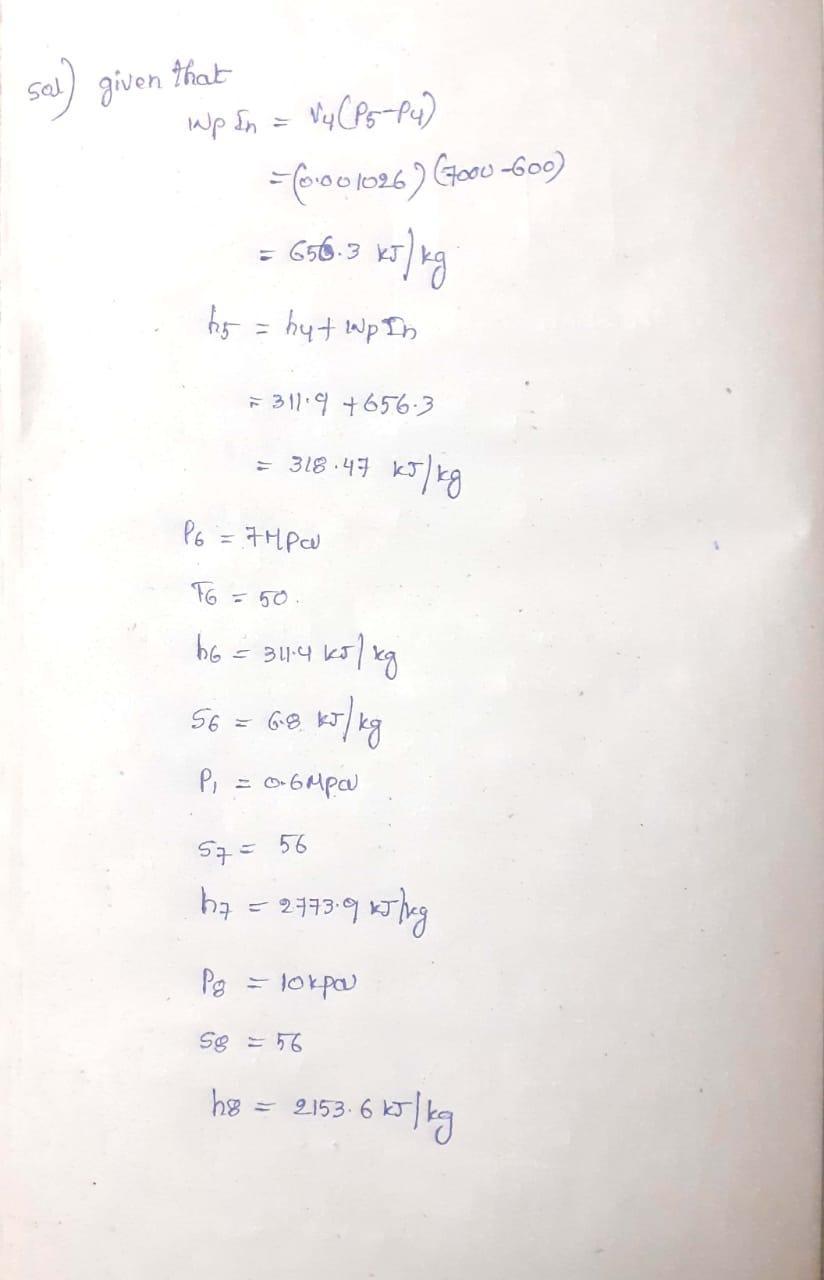 sol) given that
Wp In = V4(P5-P4)
= (0.001026) (7000-600)
= 656.3 kJ/kg
h5 = h4 + Wp In
= 311.9 + 656.3
= 318.47 kJ/kg
P6 = 7MPa
T6 = 50.
h6 = 311.4 kJ/kg
S6 = 6.8 kJ/kg
P1 = 0.6Mpa
S7 = 56
h7 = 2773.9 kJ/kg
P8 = 10kpa
S8 = 56
h8 = 2153.6 kJ/kg